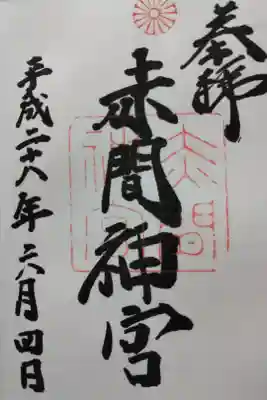 奉拝
赤間神宮
平成二十八年六月四日